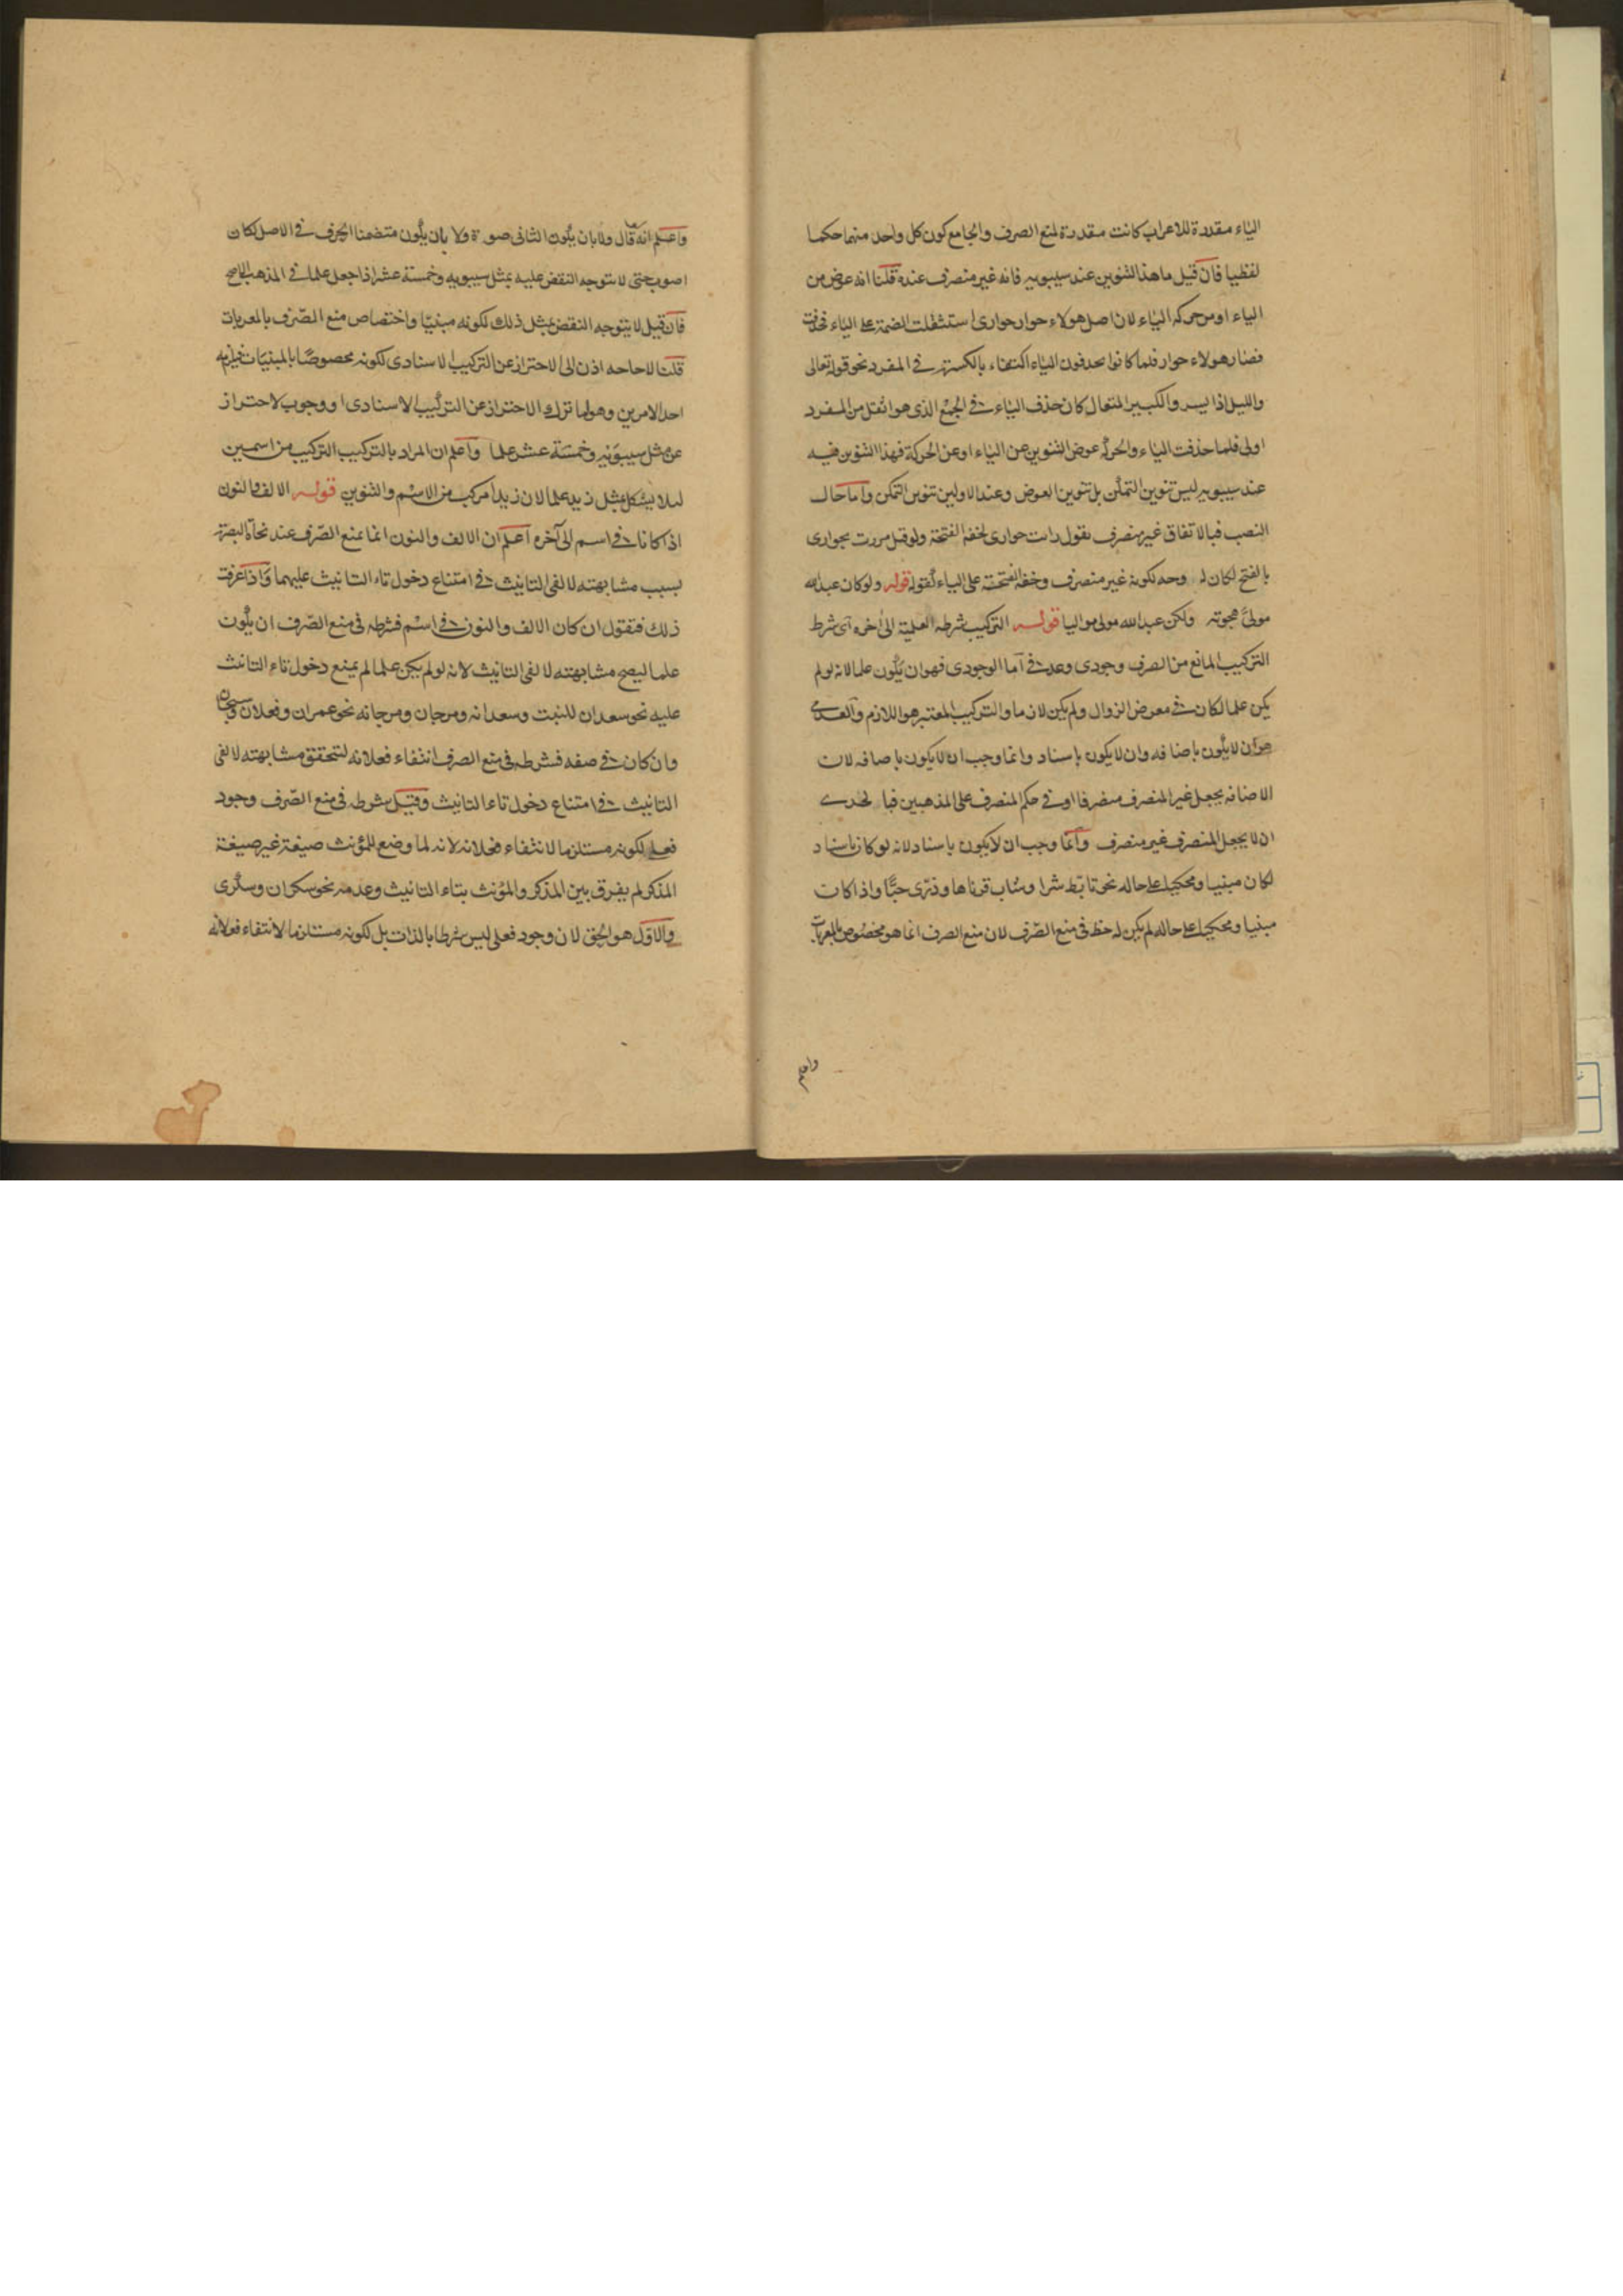 الياء مقدرة للاعراب كانت مقدرة لمنع الصرف والجامع كون كل واحد منهما حكما
لفظيا فان قيل ما هذا التنوين عند سيبويه فانه غير منصرف عنده قلنا انه عوض من
الياء او من حركة الياء لان اصل هولاء جوار جوارى استثقلت الضمة على الياء فحذفت
فصار هولاء جوار فلما كانوا يحذفون الياء اكتفاء بالكسرة في المفرد نحو قوله تعالى
والليل اذا يسر والكبير المتعال كان حذف الياء في الجمع الذى هو اثقل من المفرد
اولى فلما حذفت الياء والحركة عوض التنوين عن الياء او عن الحركة فهذا التنوين فيه
عند سيبويه ليس تنوين التمكن بل تنوين العوض وعند الاولين تنوين التمكن واما حال
النصب فبالاتفاق غير منصرف تقول رات جوارى لخفة الفتحة ولو قيل مررت بجوارى
بالفتح لكان له وجه لكونه غير منصرف وخفة الفتحة على الياء لقوله قوله ولو كان عبد الله
مولى هجوته ولكن عبد الله مولى مواليا قوله التركيب شرطه العلمية الى اخره اى شرط
التركيب المانع من الصرف وجودى وعدمى اما الوجودى فهو ان يكون علما لانه لو لم
يكن علما لكان في معرض الزوال ولم يكن لازما والتركيب المعتبر هو اللازم والعدمى
هو ان لا يكون باضافه وان لا يكون باسناد وانما وجب ان لا يكون باضافه لان
الاضافه يجعل غير المنصرف منصرفا او في حكم المنصرف على المذهبين فبالحرى
ان لا يجعل المنصرف غير منصرف وانما وجب ان لا يكون باسناد لانه لو كان باسناد
لكان مبنيا ومحكيا على حاله نحو تابط شرا وشاب قرناها وذرى حبا واذا كان
مبنيا ومحكيا على حاله لم يكن له حظ في منع الصرف لان منع الصرف انما هو مخصوص بالمعربات
واعلم
واعلم انه قال ولا بان يكون الثانى صورة ولا بان يكون متضمنا للحرف في الاصل لكان
اصوب حتى لا يتوجه النقض عليه بمثل سيبويه وخمسة عشر اذا جعل علما في المذهب
فان قيل لا يتوجه النقض بمثل ذلك لكونه مبنيا واختصاص منع الصرف بالمعربات
قلنا لا حاجه اذن الى الاحتراز عن التركيب الاسنادى لكونه مخصوصا بالمبنيات
احد الامرين وهو اما ترك الاحتراز عن التركيب الاسنادى او وجوب الاحتراز
عن مثل سيبويه وخمسة عشر علما واعلم ان المراد بالتركيب التركيب من اسمين
ليلا يشكل بمثل زيد علما لان زيدا مركب من الاسم والتنوين قوله الالف والنون
اذا كانا في اسم الى آخره اعلم ان الالف والنون انما يمنع الصرف عند نحاة البصرة
بسبب مشابهته لالفى التانيث في امتناع دخول تاء التانيث عليهما واذا عرفت
ذلك فنقول ان كان الالف والنون في اسم فشرطه في منع الصرف ان يكون
علما ليصح مشابهته لالفى التانيث لانه لو لم يكن علما لم يمنع دخول تاء التانيث
عليه نحو سعدان للنبت وسعدانه ومرجان ومرجانه نحو عمران وفعلان وسبحان
وان كان في صفه فشرطه في منع الصرف انتفاء فعلانه لتحقق مشابهته لالفى
التانيث في امتناع دخول تاء التانيث وقيل شرطه في منع الصرف وجود
فعلى لكونه مستلزما لانتفاء فعلانه لانه لما وضع للمؤنث صيغة غير صيغة
المذكر لم يفرق بين المذكر والمؤنث بتاء التانيث وعدمه نحو سكران وسكرى
والاول هو الحق لان وجود فعلى ليس شرطا بالذات بل لكونه مستلزما لانتفاء فعلانه